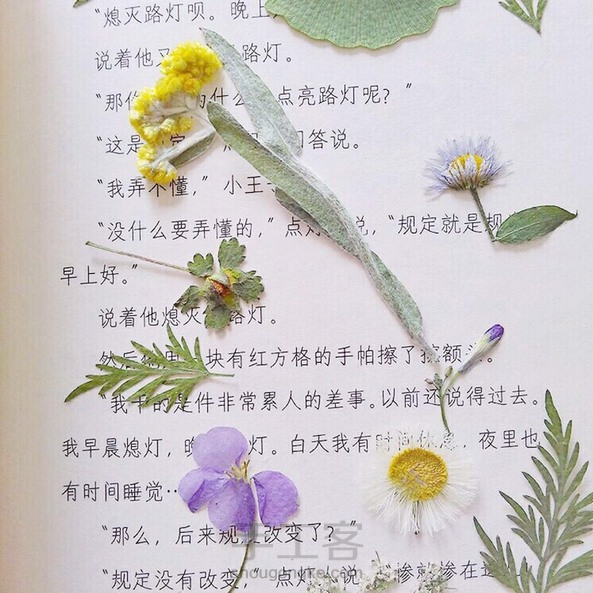 “熄灭路灯呗。晚上
说着他又 路灯。
“那你 为什么 点亮路灯呢？”
“这是 定 回答说。
“我弄不懂，”小王
“没什么要弄懂的，”点灯 说，“规定就是规
早上好。”
说着他熄灭 路灯。
然后 块有红方格的手帕擦了擦额
“我干的是件非常累人的差事。以前还说得过去。
我早晨熄灯，晚 灯。白天我有时间休息，夜里也
有时间睡觉…
“那么，后来规 改变了？”
“规定没有改变，”点灯 说 惨就惨在这
手工客
shougongke.com